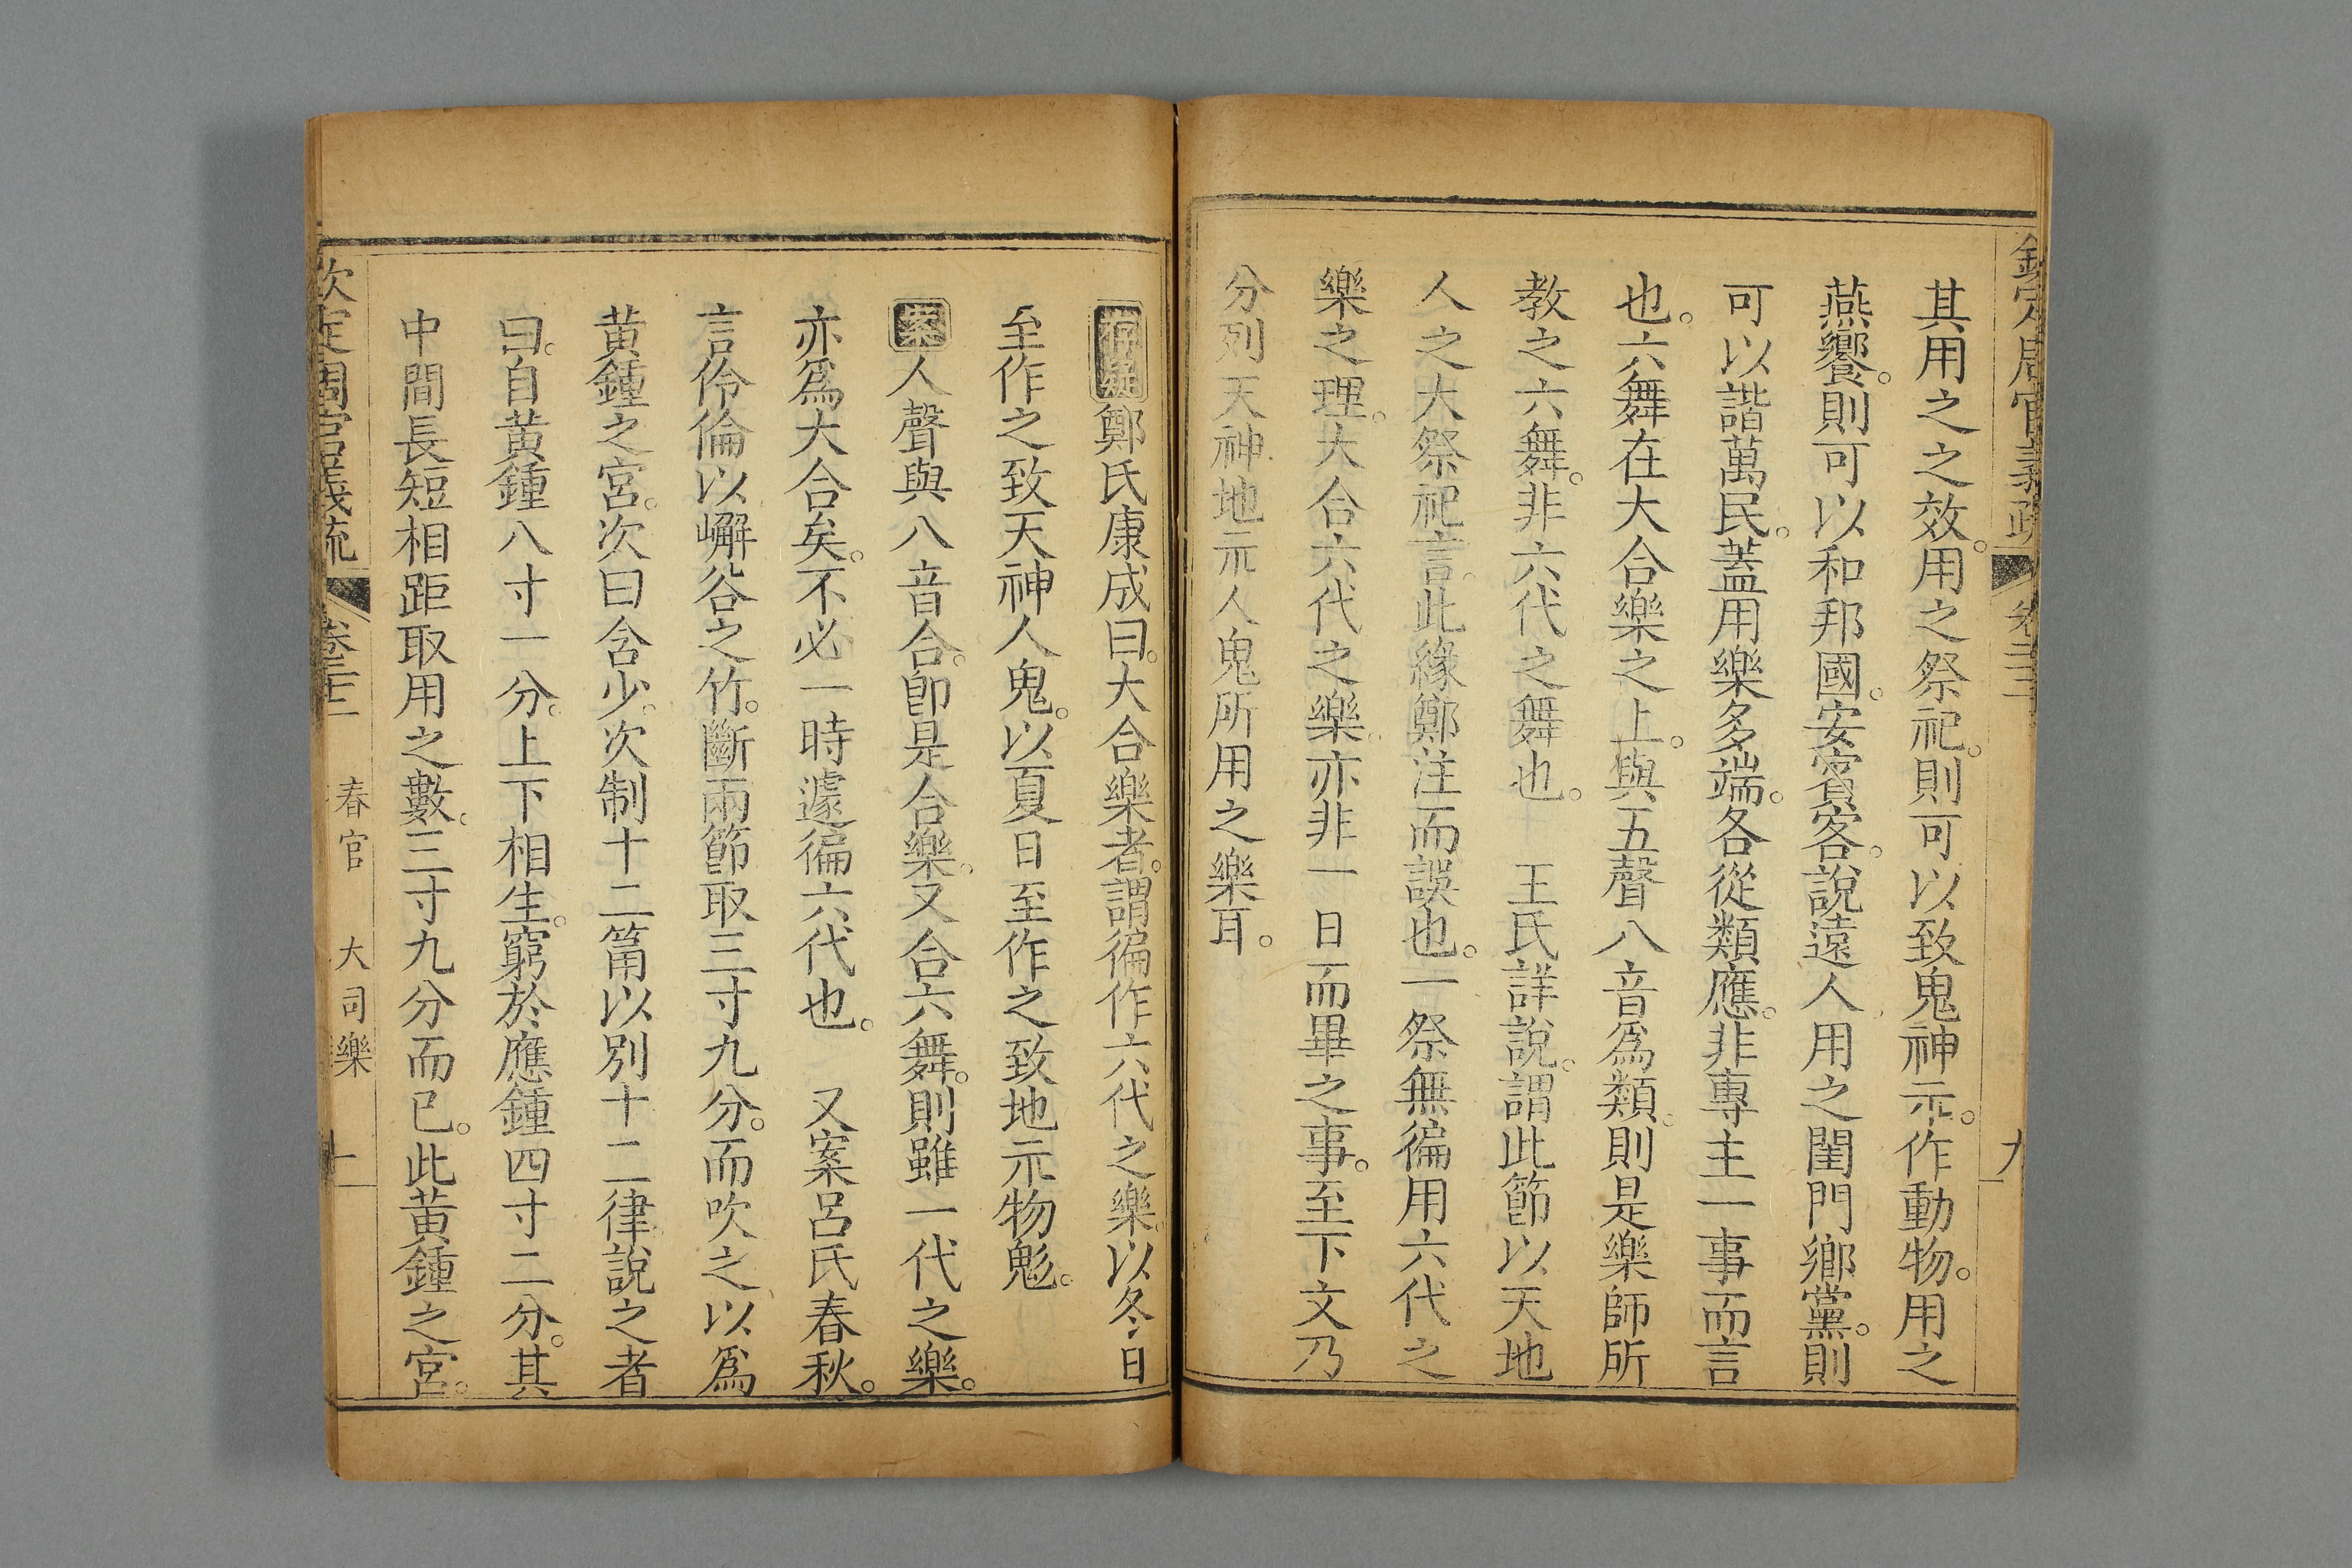 欽定周官義疏 卷二十二 九
其用之之效。用之祭祀。則可以致鬼神示。作動物。用之
燕饗。則可以和邦國。安賓客。說遠人用之閨門鄉黨。則
可以諧萬民。蓋用樂多端。各從類應。非專主一事而言
也。六舞在大合樂之上。與五聲八音爲類。則是樂師所
教之六舞。非六代之舞也。 王氏詳說。謂此節以天地
人之大祭祀言。此緣鄭注而誤也。一祭無徧用六代之
樂之理。大合六代之樂。亦非一日而畢之事。至下文乃
分列天神地示人鬼所用之樂耳。
存疑鄭氏康成曰。大合樂者。謂徧作六代之樂。以冬日
至作之致天神人鬼。以夏日至作之致地示物鬽。
案人聲與八音合。卽是合樂。又合六舞。則雖一代之樂。
亦爲大合矣。不必一時遽徧六代也。 又案呂氏春秋。
言伶倫以嶰谷之竹。斷兩節取三寸九分。而吹之以爲
黃鍾之宮。次曰含少。次制十二筩以別十二律說之者
曰。自黃鍾八寸一分。上下相生。窮於應鍾四寸二分。其
中間長短相距取用之數。三寸九分而已。此黃鍾之宮。
欽定周官義疏 卷二十二 春官 大司樂 十